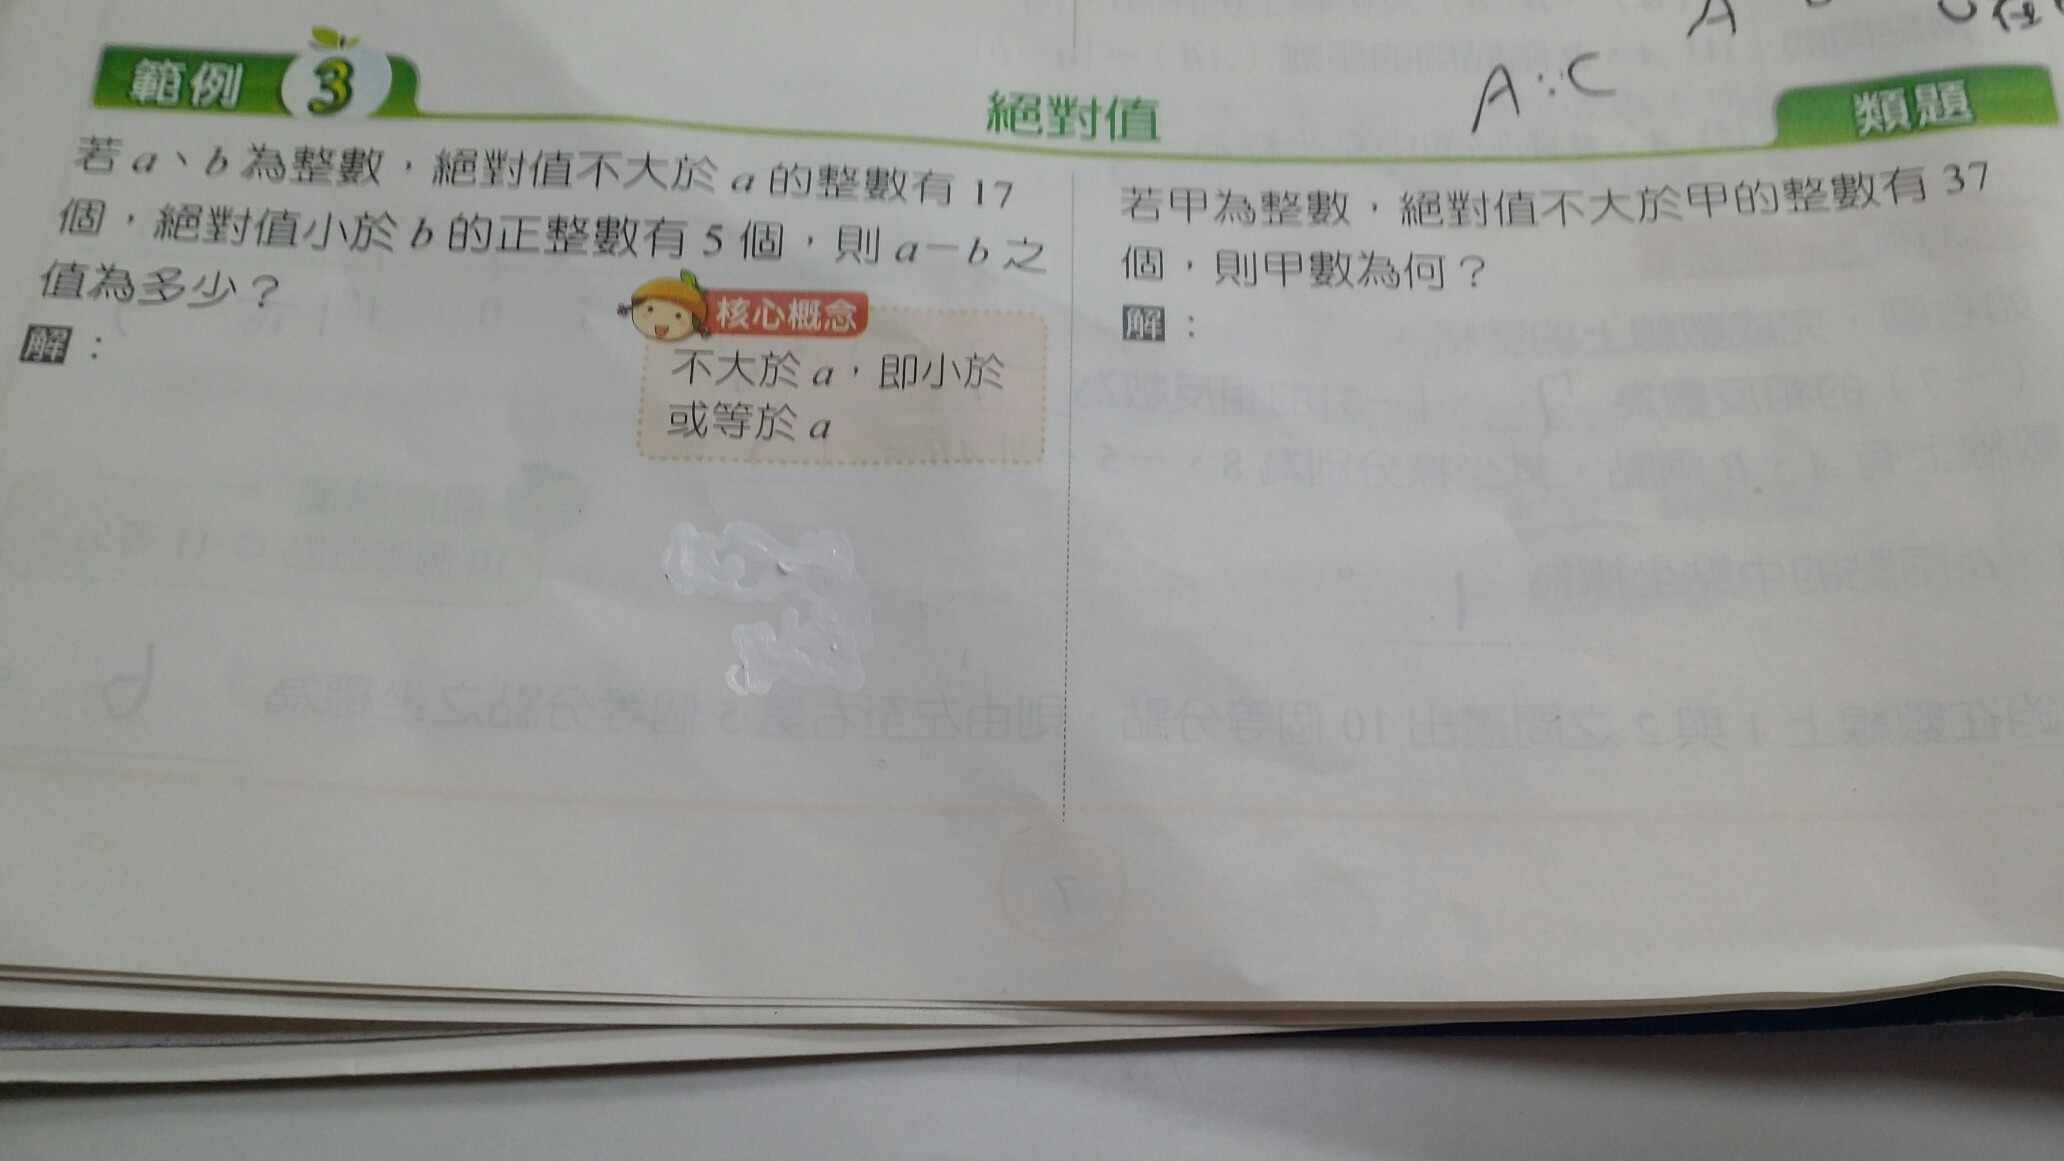 A：C
範例 3
絕對值
類題
若 a、b 為整數，絕對值不大於 a 的整數有 17
個，絕對值小於 b 的正整數有 5 個，則 a－b 之
值為多少？
解：
核心概念
不大於 a，即小於
或等於 a
若甲為整數，絕對值不大於甲的整數有 37
個，則甲數為何？
解：